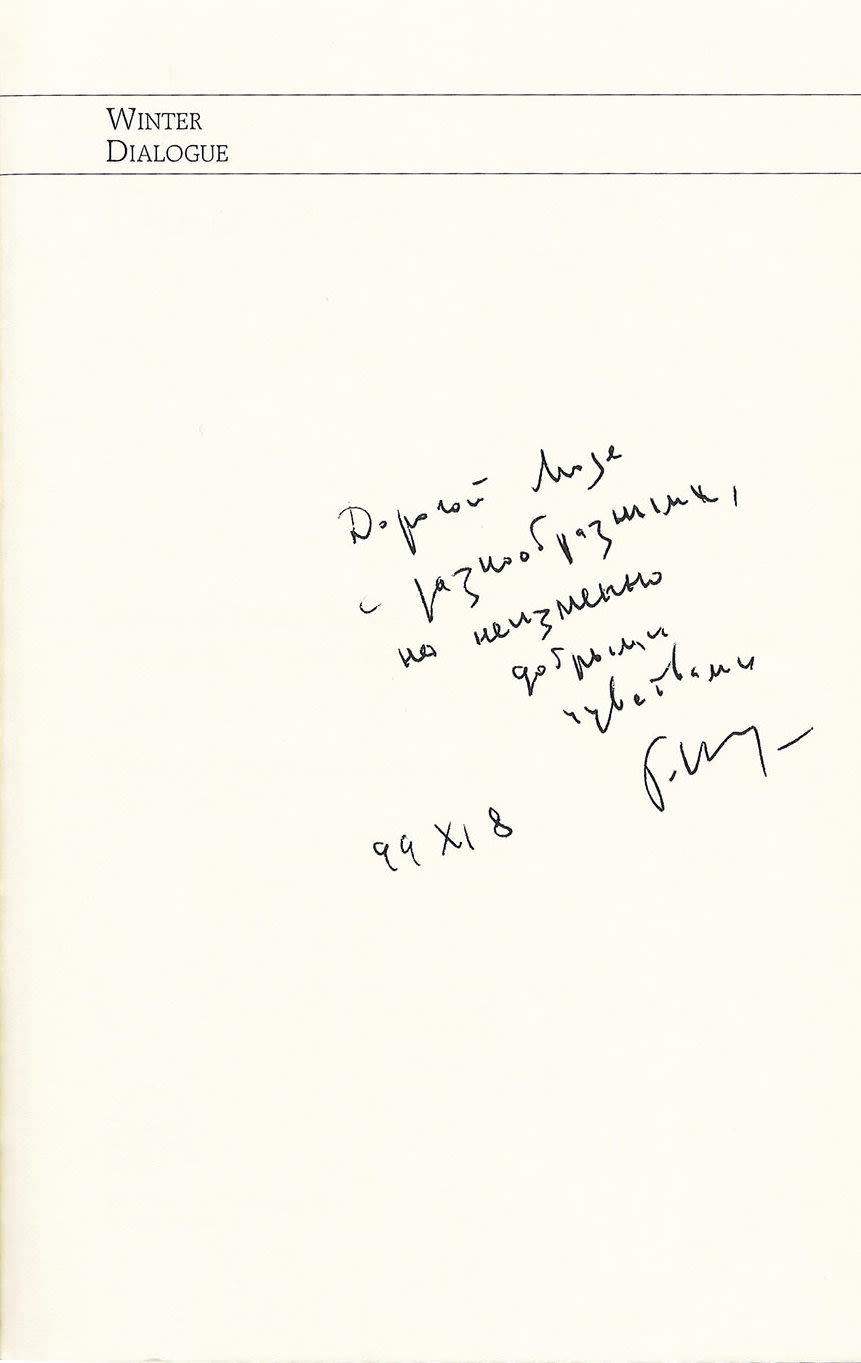 WINTER
DIALOGUE
Дорогой Лизе
с разнообразными,
но неизменно
добрыми
чувствами
99 XI 8